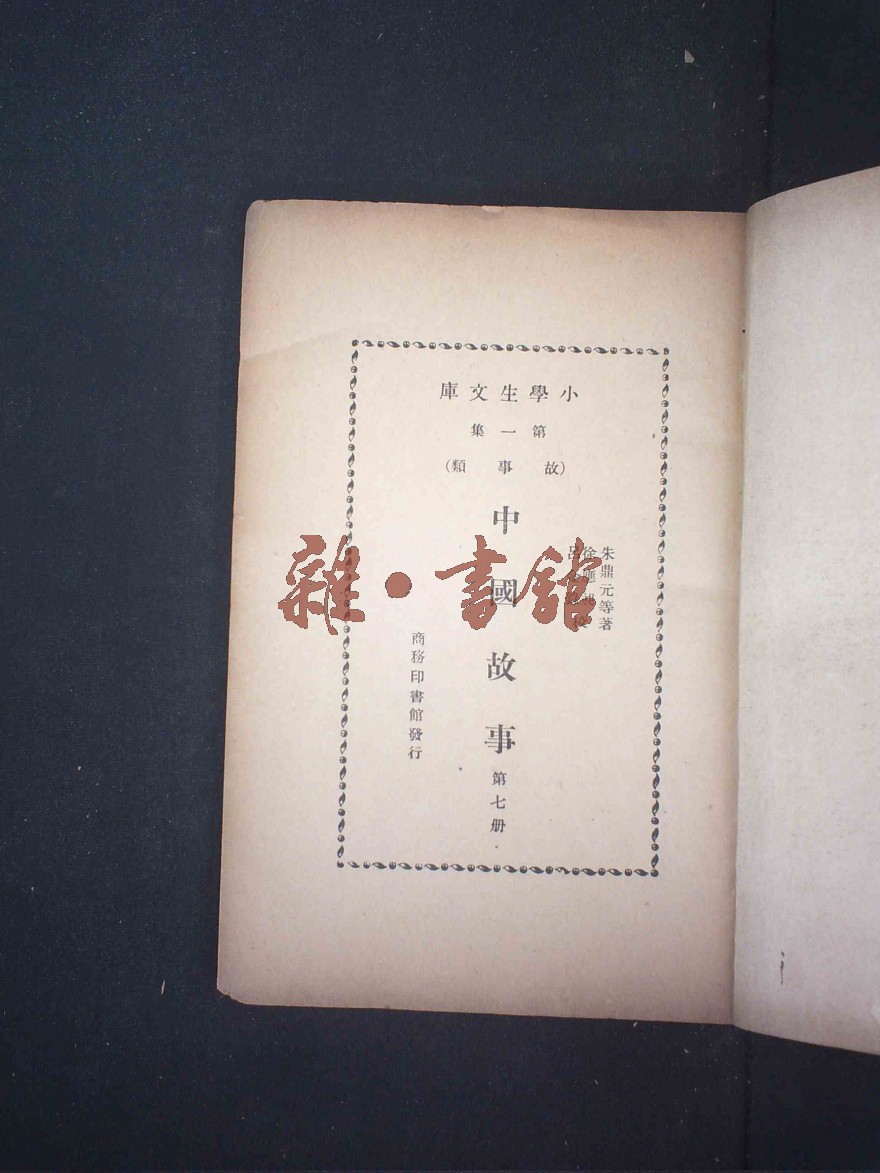 小學生文庫
第一集
（故事類）
朱鼎元等著
徐應昶
呂
中國故事
第七册
商務印書館發行
雜·書館